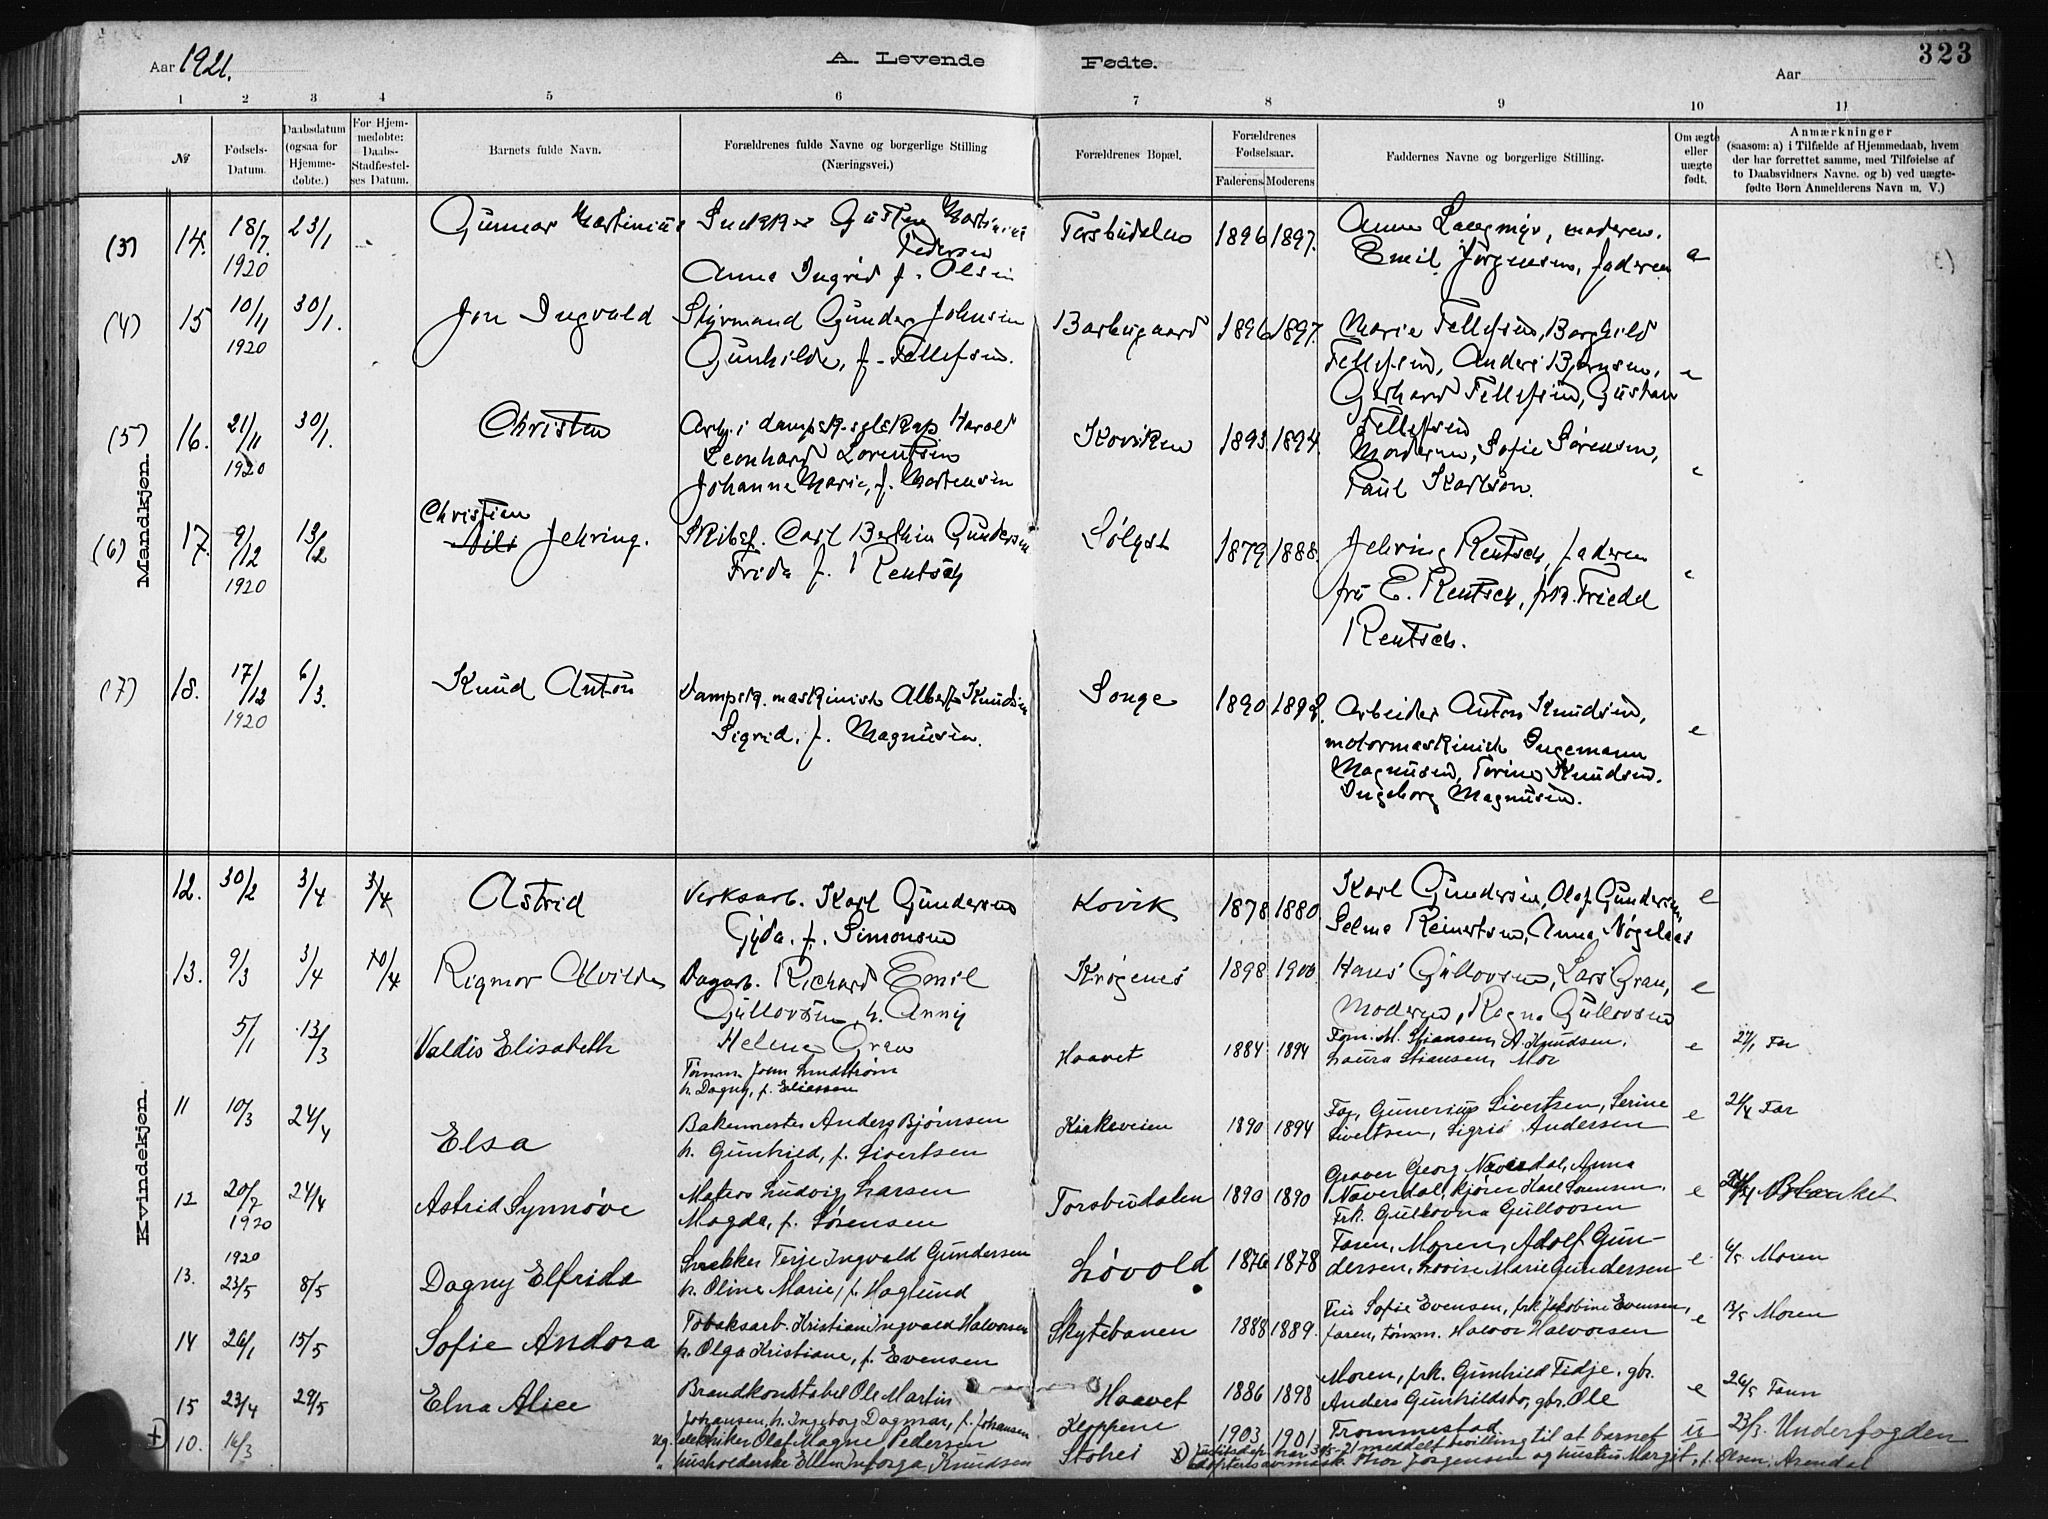 323
Aar 1921.
A. Levende Fødte.
Aar
1 2 3 4 5 6 7 8 9 10 11
№
Fødsels-
Datum.
Daabsdatum
(ogsaa for
Hjemme-
døbte.)
For Hjem-
medøbte:
Daabs-
Stadfæstel-
ses Datum.
Barnets fulde Navn.
Forældrenes fulde Navne og borgerlige Stilling
(Næringsvei.)
Forældrenes Bopæl.
Forældrenes
Fødselsaar.
Faderens Moderens
Faddernes Navne og borgerlige Stilling.
Om ægte
eller
uægte
født.
Anmærkninger
(saasom: a) i Tilfælde af Hjemmedaab, hvem
der har forrettet samme, med Tilføielse af
to Daabsvidners Navne. og b) ved uægte-
fødte Børn Anmelderens Navn m. V.)
Mandkjøn.
(3) 14. 18/7 1920 23/1 Gunnar Martinius
Gustav Martinius
Pedersen
Anna Ingrid f. Olsen
Torsbudalen 1896 1897.
Anna Langmyr, moderen.
Emil Jørgensen, faderen
(4) 15 10/11 1920 30/1. Jon Ingvald
Styrmand Gunder Johnsen
Gunhilde, f. Tellefsen.
Barbugaard 1896 1897.
Marie Tellefsen, Borghild
Tellefsen, Anders Bjørnsen,
Gerhard Tellefsen, Gustav
Tellefsen
e
(5) 16. 21/11 1920 30/1. Christen
Arb. i dampsk. selskap Harald
Leonhard Lorentsen
Johanne Marie, f. Mortensen
Koviken 1893 1894.
Moderen, Sofie Sørensen,
Paul Karlson.
e
(6) 17. 9/12 1920 13/2 Christien
Nils Jehring.
Skibsf. Carl Berthin Gundersen
Frida f. Rentsch
Sølyst 1879 1888.
Jehring Rentsch, faderen
fru E. Rentsch, frk. Friedel
Rentsch.
e
(7) 18. 17/12 1920 6/3. Knud Anton
Dampsk. maskinist Albert Knudsen
Sigrid, f. Magnusen.
Songe 1890 1892.
Arbeider Anton Knudsen,
motormaskinist Ingemann
Magnusen, Torine Knudsen.
Ingeborg Magnusen.
e
Kvindekjøn.
12. 30/2 3/4 3/4 Astrid
Verksarb. Karl Gundersen
Gyda. f. Simonsen
Kovik 1878 1880
Karl Gundersen, Olaf Gundersen,
Selma Reinertsen, Anna Nøgelaas
e
13. 9/3 3/4 10/4 Rigmor Alvilde
Dagarb. Richard Emil
Gullovsen h. Anny
Helene Gran
Krøgenes 1898 1900
Hans Gullovsen, Lars Gran,
Moderen, Ragna Gullovsen
e
5/1 13/3 Valdis Elisabeth
Tømm. John Lundstrøm
h. Dagny, f. Eliassen
Haavet 1884 1894
Tøm. M. Stiansen, A. Knudsen,
Laura Stiansen, Mor
e 27/1 Far
11 10/3 24/4 Elsa
Bakermester Anders Bjørnsen
h. Gunhild, f. Sivertsen
Kirkeveien 1890 1894
Far, Gunerius Sivertsen, Serine
Sivertsen, Sigrid Andersen
e 24/4 Far
12 20/7 1920 24/4 Astrid Synnøve
Matros Ludvig Larsen
Magda, f. Sørensen
Torsbudalen 1890 1890
Graver Georg Næverdal, Anna
Næverdal, kjører Karl Sørensen.
Frk. Gullovna Gullovsen
e 24/4 Blanket
13. 1920 23/5 8/5 Dagny Elfrida
Snekker Terje Ingvald Gundersen
h. Oline Marie, f. Haglund
Løvold 1876 1878
Faren, Moren, Adolf Gun-
dersen, Lovise Marie Gundersen
e 6/5 Moren
14 26/1 15/5 Sofie Andora
Tobaksarb. Kristian Ingvald Halvorsen
h. Olga Kristiane, f. Evensen
Skytebanen 1888 1889.
Fru Sofie Evensen, frk Jakobine Evensen,
faren, tømm. Halvor Halvorsen
e 13/5 Moren
15 23/4 29/5 Elna Alice
Brandkonstabel Ole Martin
Johansen, h. Ingeborg Dagmar, f. Johansen
Haavet 1886 1898
Moren, frk. Gunhild Fidje, gbr.
Anders Gunhildsbo, gbr. Ole
Frommestad
e 26/5 Faren
10. 16/3
ug. elektriker Olaf Magne Pedersen
" husholderske Ellen Inborga Knudsen
Kloppene
Stokei
1903 1901
u 23/3. Underfogden
x) Justitsdep. har 30/5-21 meddelt bevilling til at barnet
adopteres av mask. Thor Jørgensen og hustru Margit, f. Olsen, Arendal